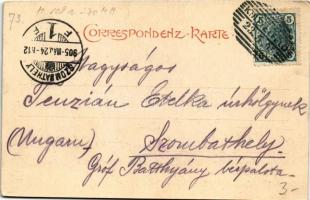 73.
CORRESPONDENZ-KARTE
5
SZOMBATHELY
905 MÁJ. 24
F 1
Nagyságos
Etelka úrhölgynek
(Ungarn)
Szombathely.
Gróf Batthyány bérpalota.
3-